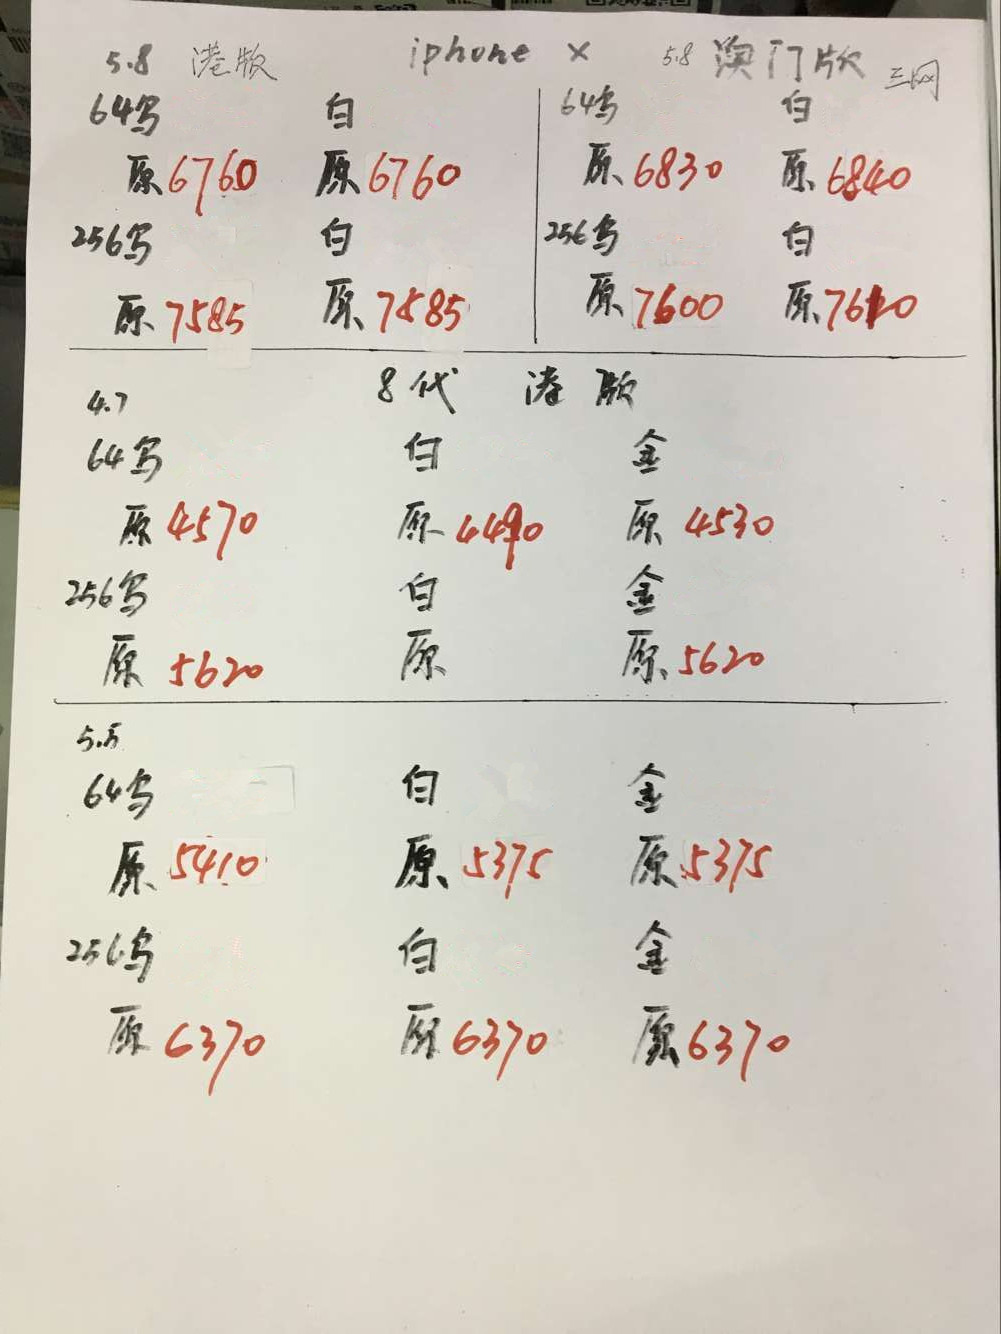 5.8 港版 iphone X 5.8 澳门版 三网
64乌 白 64乌 白
原6760 原6760 原6830 原6840
256乌 白 256乌 白
原7585 原7585 原7600 原7610
4.7 8代 港版
64乌 白 金
原4570 原4490 原4530
256乌 白 金
原5620 原 原5620
5.5
64乌 白 金
原5410 原5375 原5375
256乌 白 金
原6370 原6370 原6370